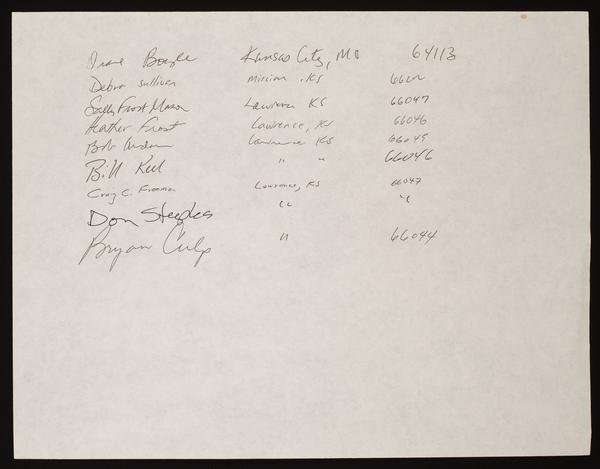 Diane Boyle Kansas City, MO 64113
Debra Sullivan Mission, KS
Sally Frost Mason Lawrence KS 66047
Heather Frost Lawrence, KS 66046
Bob Lawrence KS 66049
Bill " " 66046
Craig C. Freeman Lawrence, KS 66047
Don Steeples " "
Bryan Culp " 66044